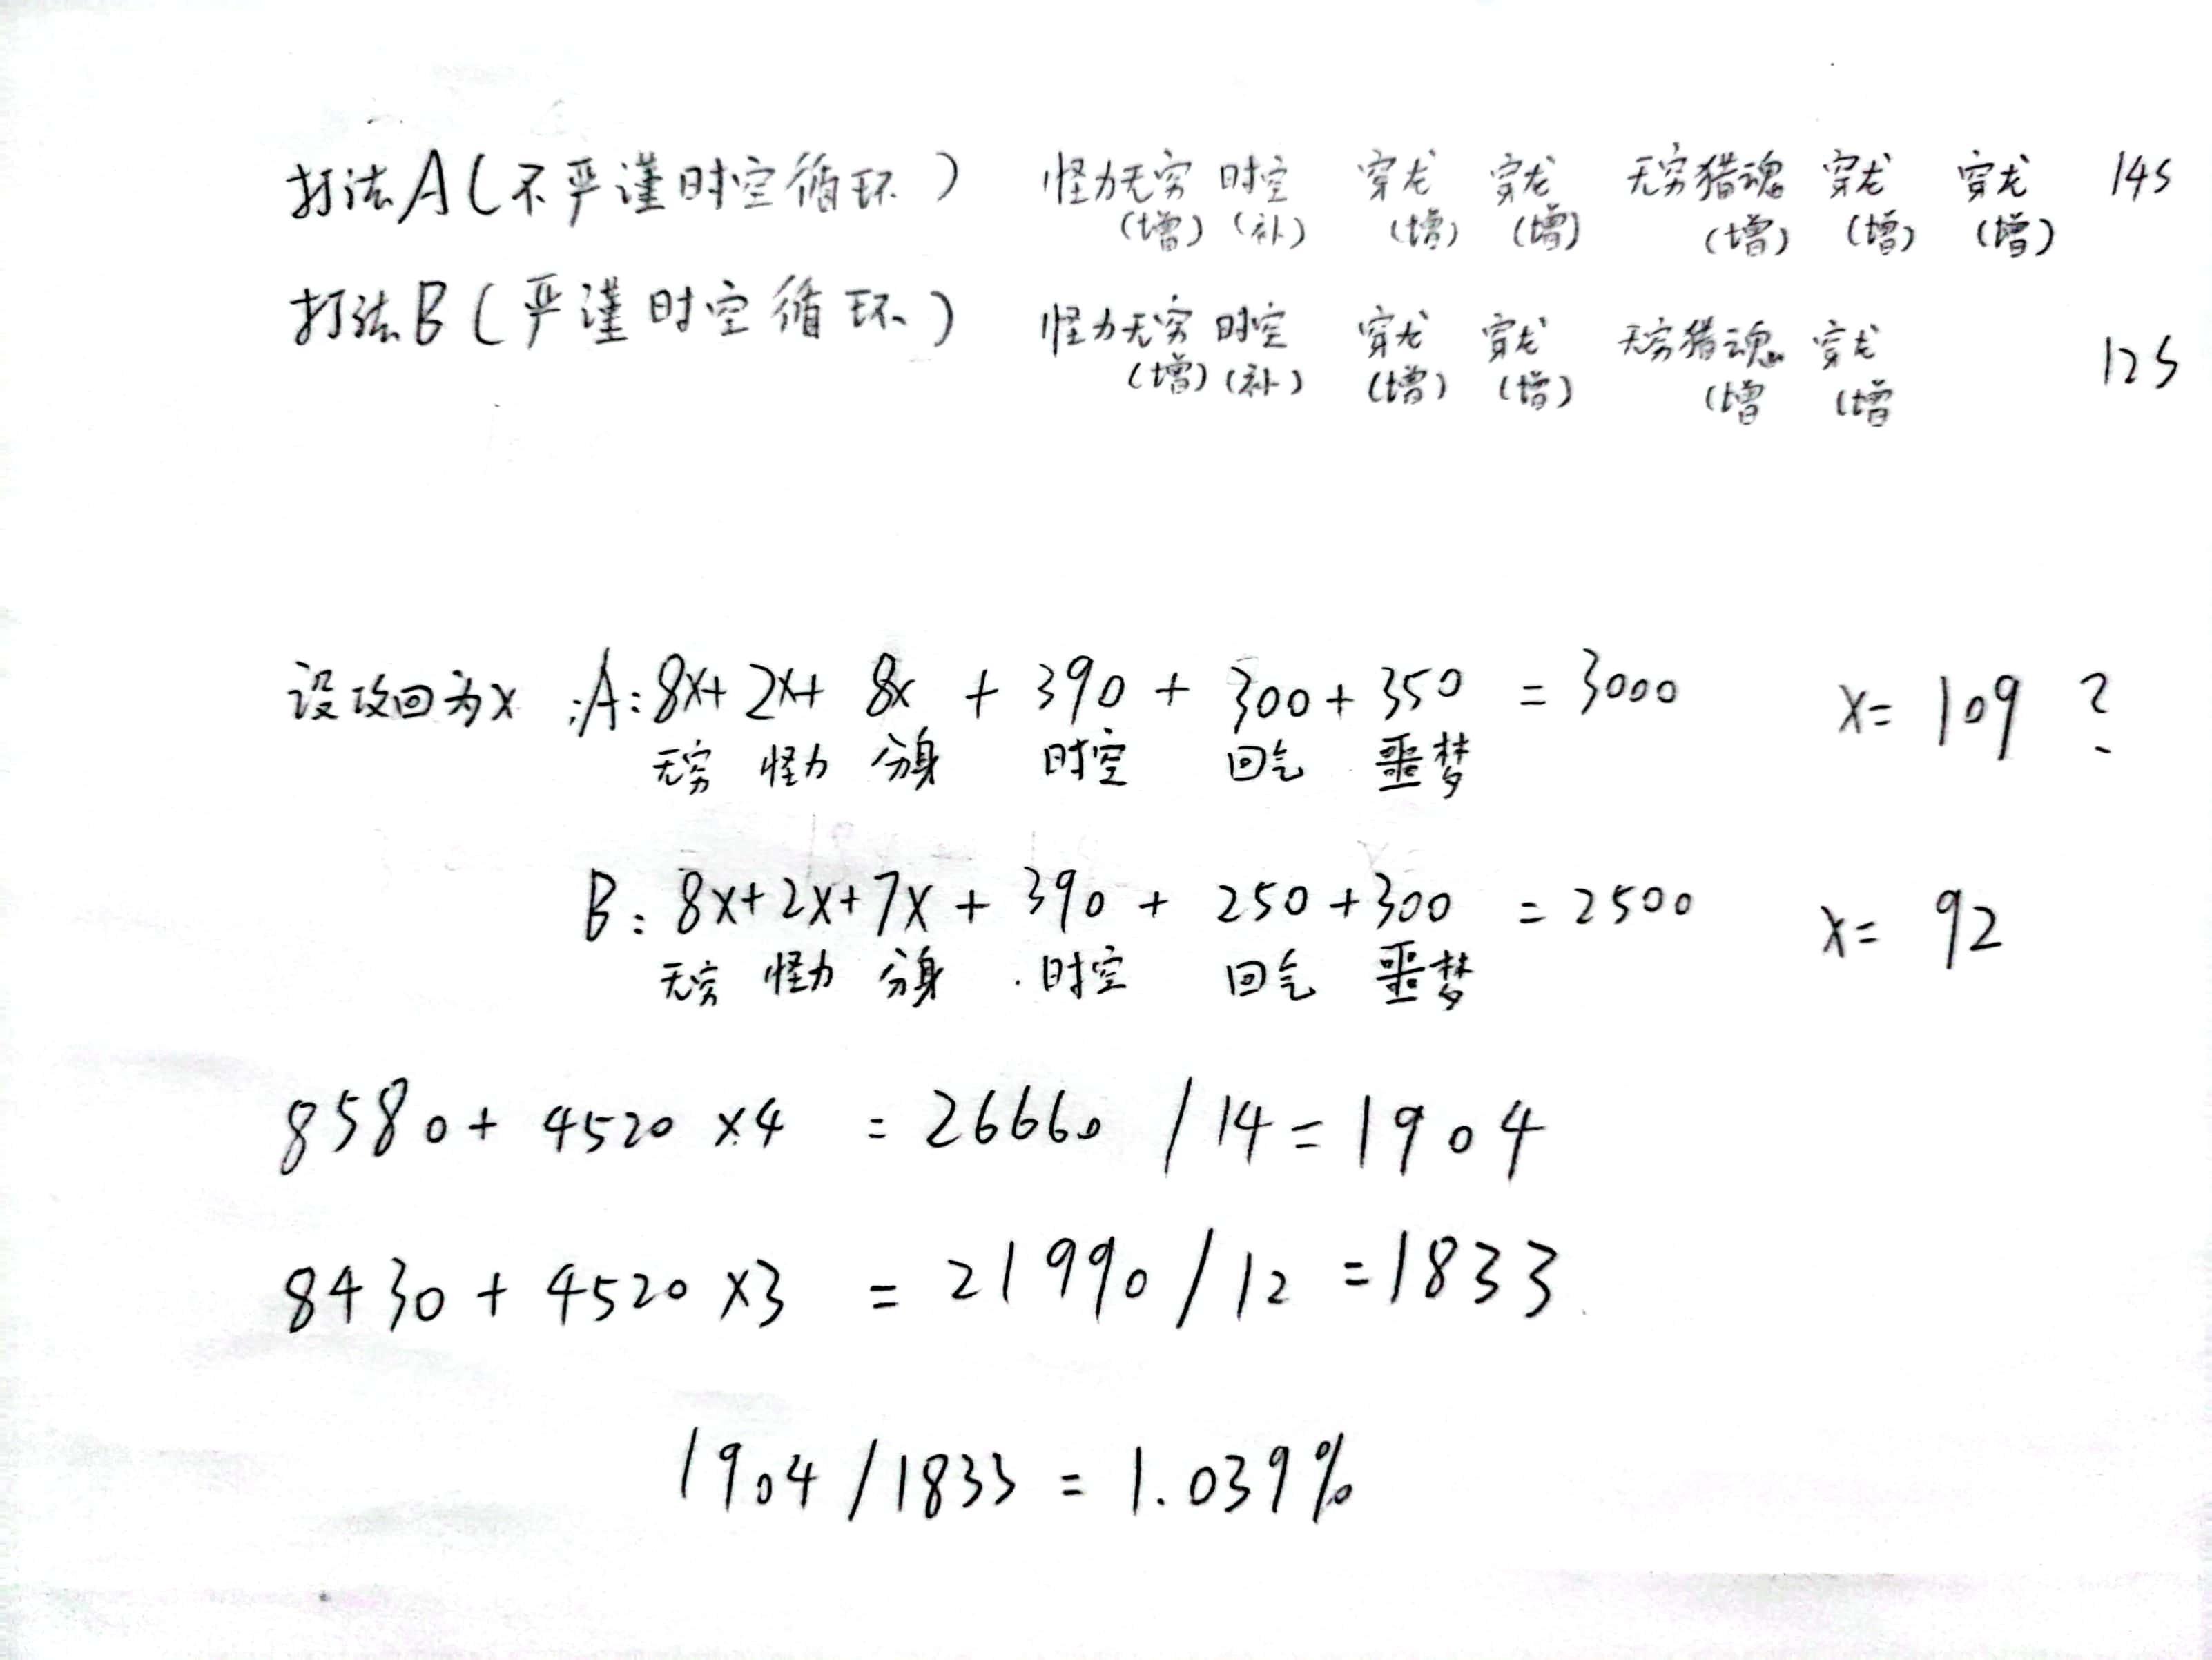 打法A(不严谨时空循环) 怪力无穷 时空 穿龙 穿龙 无穷猎魂 穿龙 穿龙 14s
(增) (补) (增) (增) (增) (增) (增)
打法B(严谨时空循环) 怪力无穷 时空 穿龙 穿龙 无穷猎魂 穿龙 12s
(增) (补) (增) (增) (增 (增
设攻回为x :A: 8x+ 2x+ 8x + 390 + 300 + 350 = 3000 x= 109 ?
无穷 怪力 分身 时空 回气 噩梦
B: 8x+ 2x+ 7x + 390 + 250 + 300 = 2500 x= 92
无穷 怪力 分身 时空 回气 噩梦
8580 + 4520 x4 = 26660 / 14 = 1904
8430 + 4520 x3 = 21990 / 12 = 1833
1904 / 1833 = 1.039%